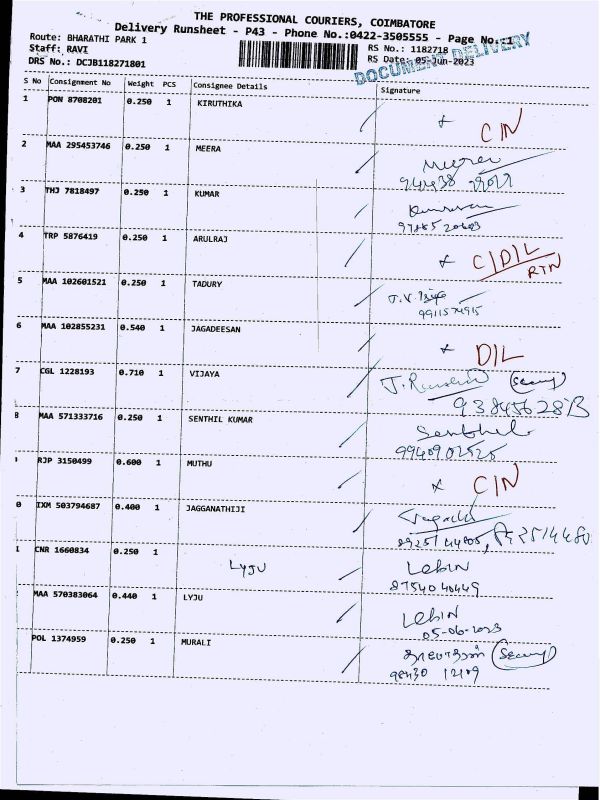 THE PROFESSIONAL COURIERS, COIMBATORE
Delivery Runsheet - P43 - Phone No.:0422-3505555 - Page No.:1
Route: BHARATHI PARK 1
RS No.: 1182718
Staff: RAVI
RS Date: 05-Jun-2023
DRS No.: DCJB118271801
DOCUMENT DELIVERY
S No Consignment No Weight PCS Consignee Details Signature
1 PON 8708201 0.250 1 KIRUTHIKA C/N
2 MAA 295453746 0.250 1 MEERA Meera
3 THJ 7818497 0.250 1 KUMAR
4 TRP 5876419 0.250 1 ARULRAJ C/D/L
RTN
5 MAA 102601521 0.250 1 TADURY
6 MAA 102855231 0.540 1 JAGADEESAN D/L
7 CGL 1228193 0.710 1 VIJAYA
8 MAA 571333716 0.250 1 SENTHIL KUMAR Senthil
RJP 3150499 0.600 1 MUTHU C/N
0 IXM 503794687 0.400 1 JAGGANATHIJI
1 CNR 1660834 0.250 1 LYJU LEBIN
8754040449
MAA 570383064 0.440 1 LYJU LEBIN
05-06-2023
POL 1374959 0.250 1 MURALI